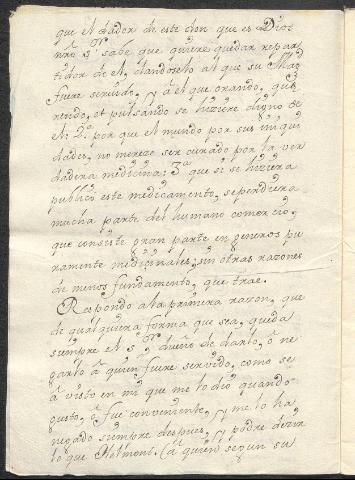 que el dador de este don que es Dios
nro Sr. sabe que quiere quedar repar
tidor de el, dandoselo al que su Mag
fuere servido, y á el que orando, que
rendo, et pulsando se hiziere digno de
el: 2ª por que el mundo por sus iniqui
dades, no mereze ser curado por la ver
dadera medicina: 3ª que si se hiziera
publico este medicamento, se perdiera
mucha parte del humano comercio,
que consiste gran parte en generos pu
ramente medicinales, sin otras razones
de menos fundamento, que trae.
Respondo a la primera razon, que
de qualquiera forma que sea, queda
siempre el Sr. dueño de darlo, ó ne
garlo à quien fuere servido, como se
à visto en mi que me lo dió quando
gustò, ò fue conveniente, y me lo ha
negado siempre despues, y podre dezir
lo que Helmont. (à quien segun su